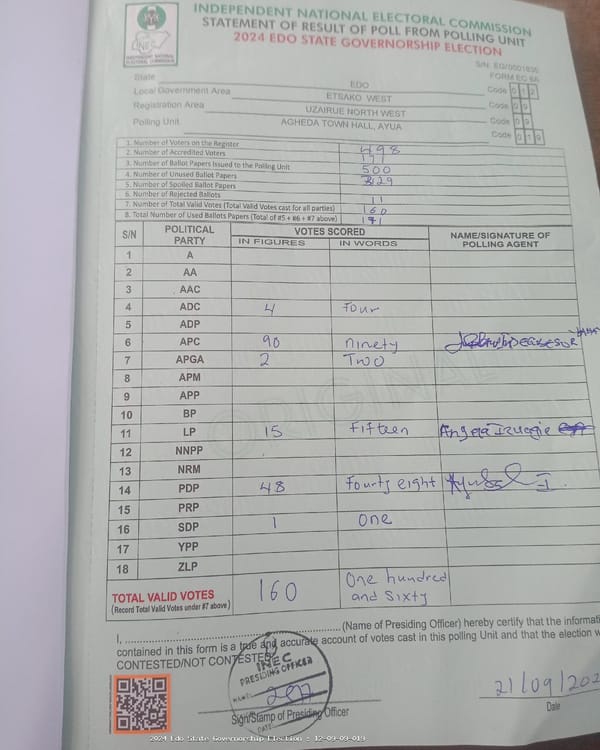 INDEPENDENT NATIONAL ELECTORAL COMMISSION
STATEMENT OF RESULT OF POLL FROM POLLING UNIT
2024 EDO STATE GOVERNORSHIP ELECTION
FORM EC 8A
State EDO Code 012
Local Government Area ETSAKO WEST Code
Registration Area UZAIRUE NORTH WEST Code
Polling Unit AGHEDA TOWN HALL, AYUA Code
1. Number of Voters on the Register 498
2. Number of Accredited Voters 171
3. Number of Ballot Papers Issued to the Polling Unit 500
4. Number of Unused Ballot Papers 329
5. Number of Spoiled Ballot Papers
6. Number of Rejected Ballots 11
7. Number of Total Valid Votes (Total Valid Votes cast for all parties) 160
8. Total Number of Used Ballots Papers (Total of #5 + #6 + #7 above) 171
S/N POLITICAL PARTY VOTES SCORED NAME/SIGNATURE OF POLLING AGENT
IN FIGURES IN WORDS
1 A
2 AA
3 AAC
4 ADC 4 Four
5 ADP
6 APC 90 Ninety
7 APGA 2 Two
8 APM
9 APP
10 BP
11 LP 15 Fifteen Angela
12 NNPP
13 NRM
14 PDP 48 Fourty eight
15 PRP
16 SDP 1 One
17 YPP
18 ZLP
TOTAL VALID VOTES 160 One hundred
(Record Total Valid Votes under #7 above) and Sixty
ORIGINAL
I, (Name of Presiding Officer) hereby certify that the informati
contained in this form is a true and accurate account of votes cast in this polling Unit and that the election w
CONTESTED/NOT CONTESTED
INEC
PRESIDING OFFICER
DATE
21/09/202
Sign/Stamp of Presiding Officer Date
2024 Edo State Governorship Election : 12-09-09-019